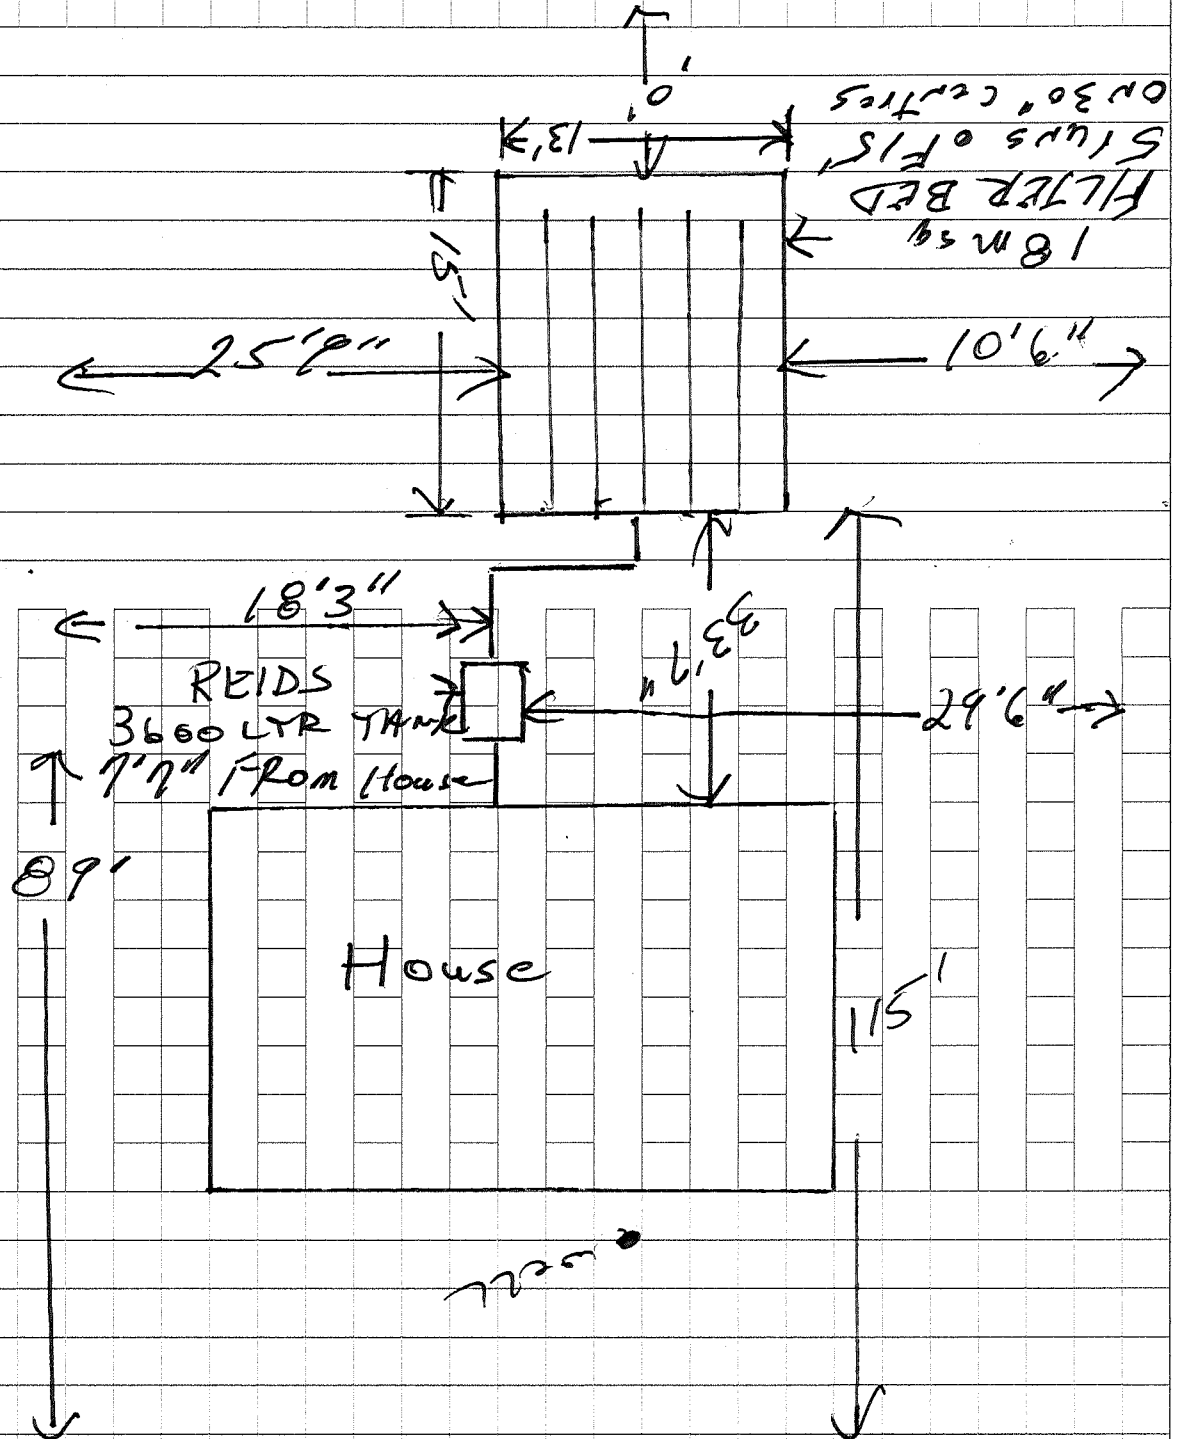 10'
13'
18 m sq
FILTER BED
5 runs of 15'
on 30" centres
15'
10'6"
18'3"
REIDS
3600 LTR TANK
From House
House
115'
89'
well